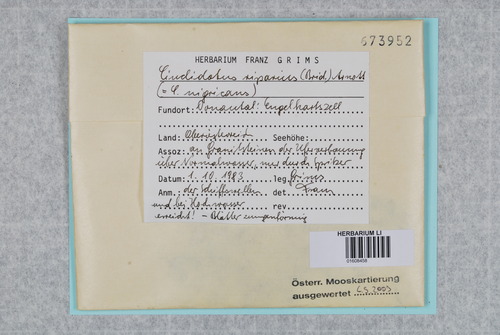 673952
HERBARIUM FRANZ GRIMS
Cinclidotus riparius (Brid.) Arnott
(= C. nigricans)
Fundort: Donautal: Engelhartszell
Land: Oberösterreich Seehöhe:
Assoz: an Granitsteinen der Uferverbauung
über Normalwasser, nur durch Spritzer
Datum: 1. 10. 1983 leg. Grims
Anm. der Schiffswellen det. Franz
und bei Hochwasser rev.
erreicht! - Blätter zungenförmig
HERBARIUM LI
Österr. Mooskartierung
ausgewertet